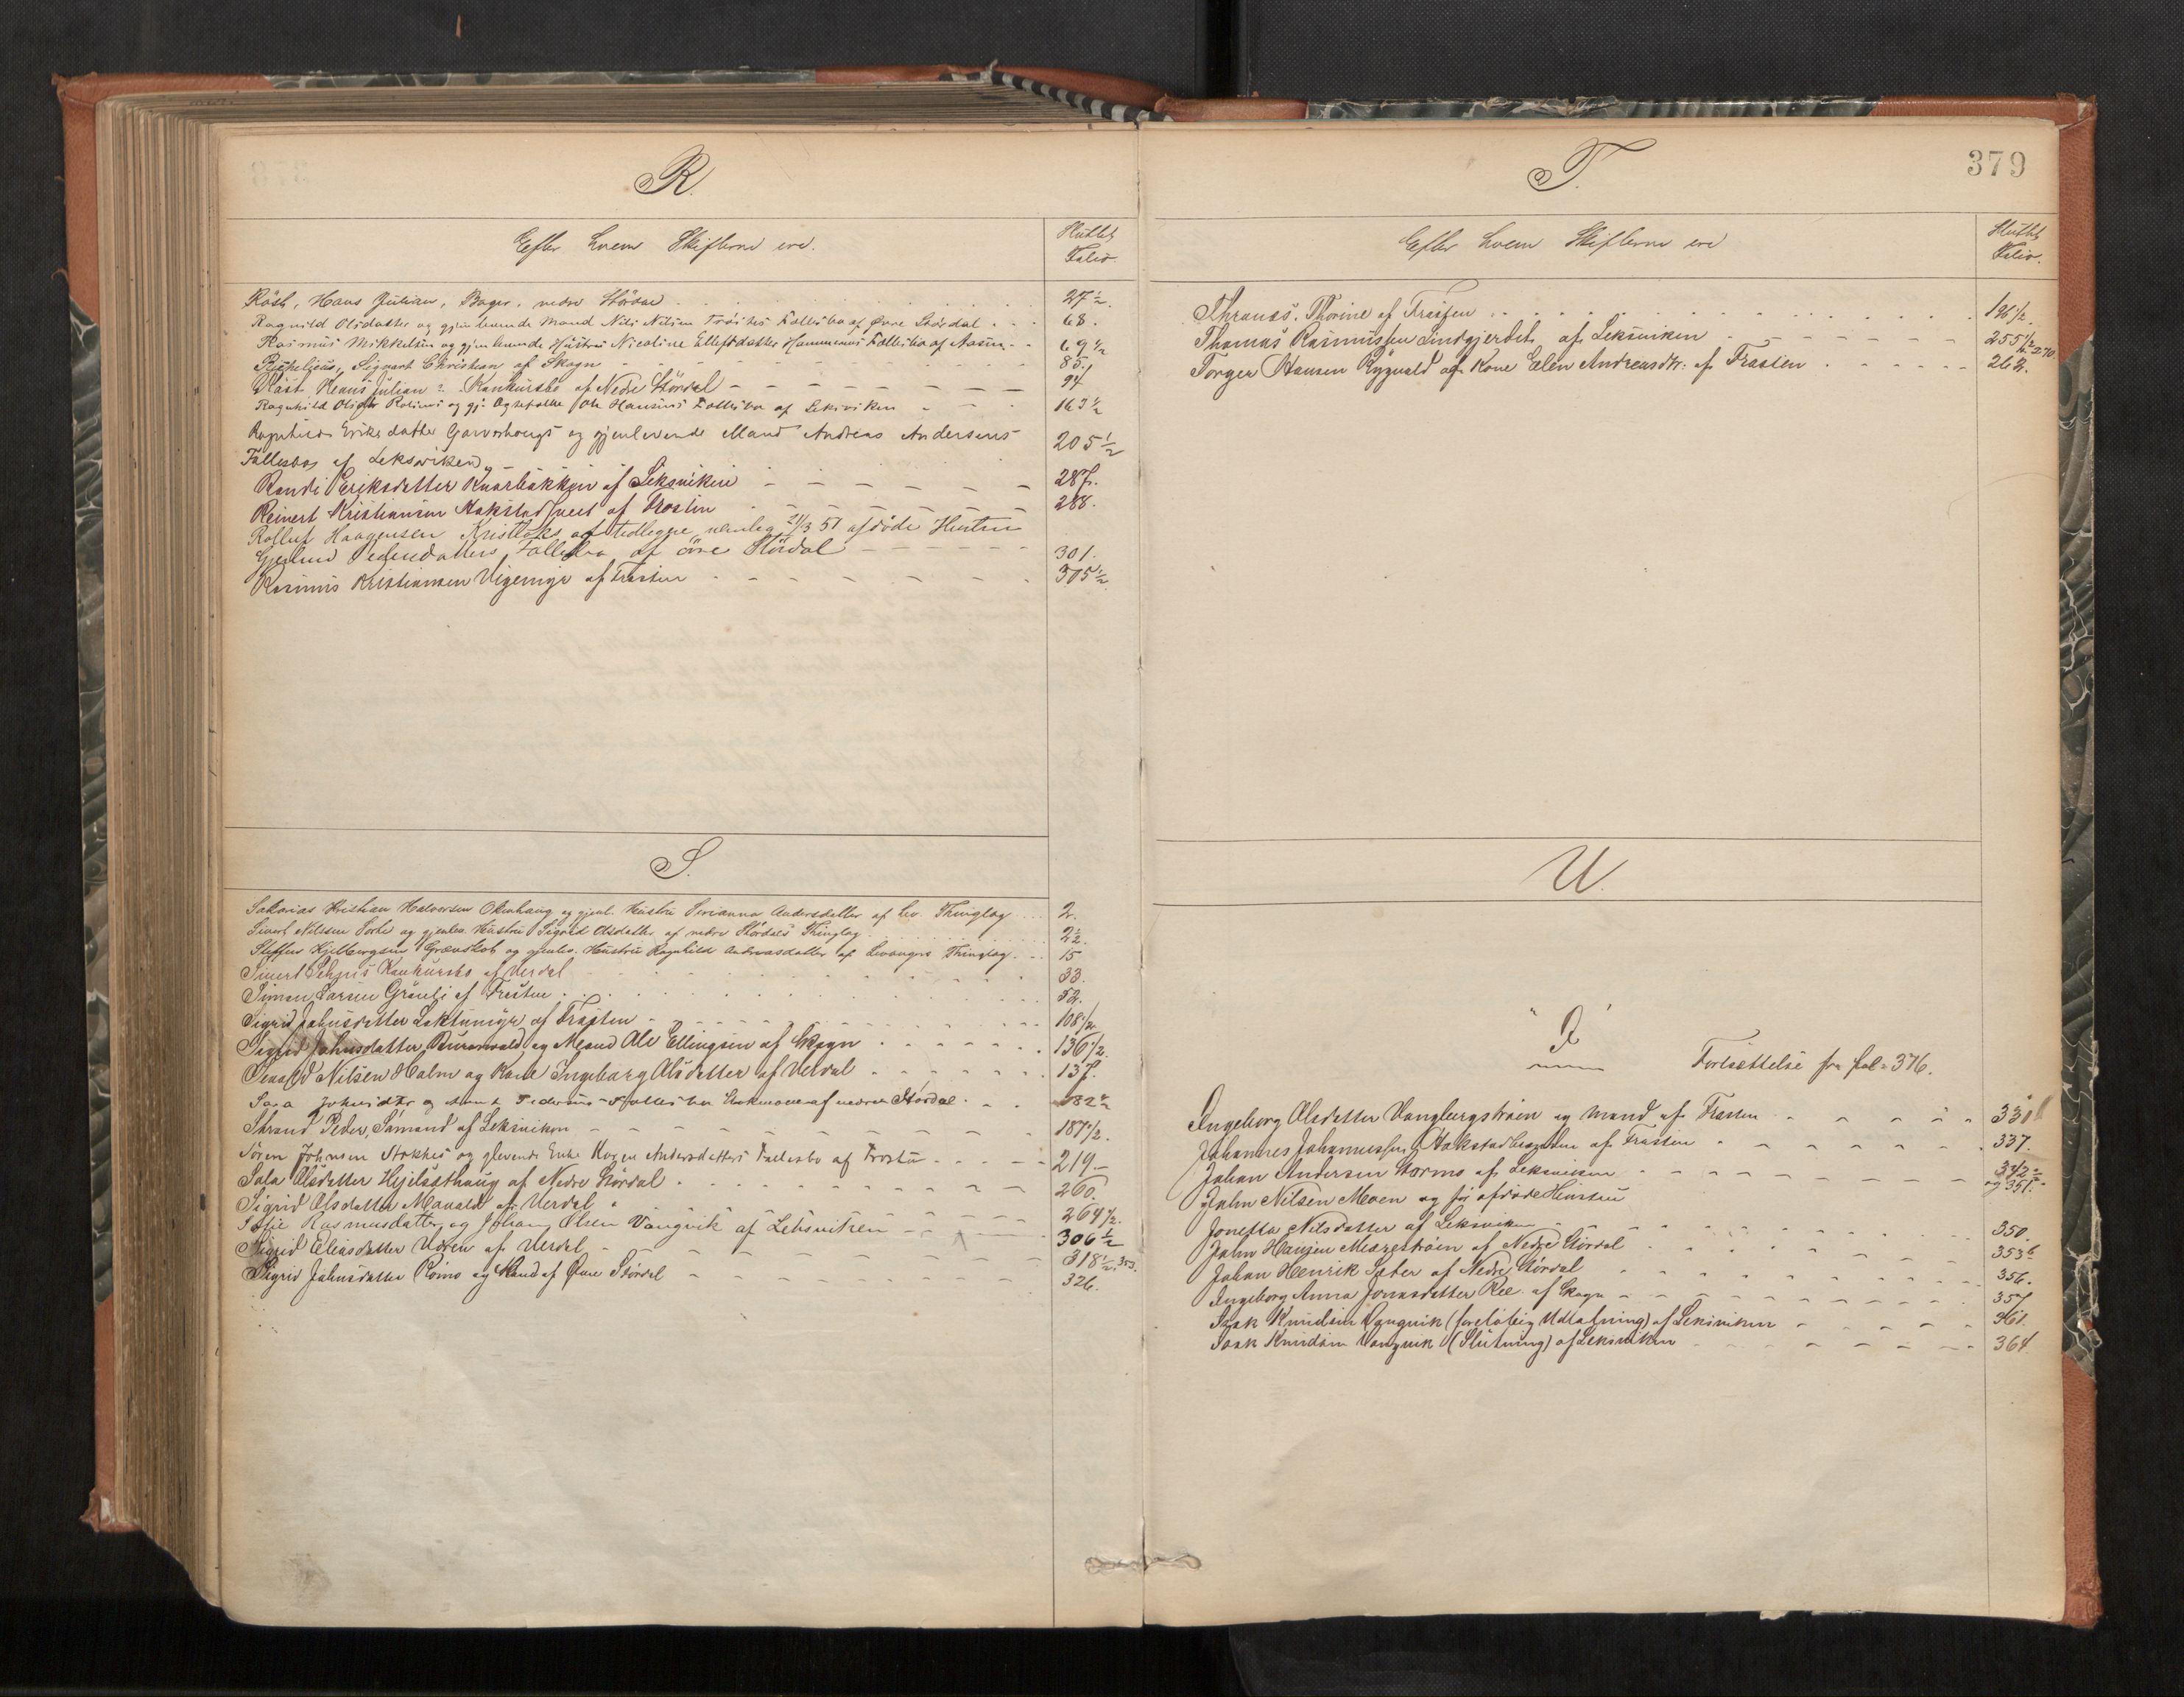 R.
Efter hvem Skifterne ere.
Sluttet Folio.
Röst, Hans Julian, Bager, nedre Stördal 27½.
Ragnild Olsdatter og gjenlevende Mand Nils Nilsen Fællesbo af Øvre Stördal 68.
Rasmus Mikkelsen og gjenlevende Hustru Nicoline Ellefsdatter Hammernes Fællesbo af Aasen 69½
Richelieus, Sigvart Christian af Skogn 85.
Röst Julian Konkursbo af Nedre Stördal 94
Ragnhild Olsdtr og gj. Fællesbo af Leksviken 163½
Ragnhild Eriksdatter Garverhougs og gjenlevende Mand Andreas Andersens 205½
Fællesbo af Leksviken
Randi Eriksdatter Kuarbakken af Leksviken 287.
Reinert Kristiansen Hokstad af Frosten 288.
Rolluf Haagensen afdöde Hustru
Gjertrud Pedersdatters Fællesbo af övre Stördal 301.
Rasmus Kristiansen Vigemyr af Frosten 305½
S.
Sakarias Kristian Halvorsen Okenhaug og gjenl. Hustru Serianna Andersdatter af Lev. Thinglag 2.
Sivert Nilsen og gjenlev. Hustru Sigrid Olsdatter af nedre Stördals Thinglag 2½
Steffen Kjelbergsen Grønskot og gjenlev. Hustru Ragnhild Andreasdatter af Levangers Thinglag 15
Sivert Konkursbo af Verdal 33.
Simon Larsen af Frosten 52.
Sigrid Johnsdatter af Frosten 108½
Sigrid Johnsdatter og Mand Ole Ellingsen af Skogn 136½.
Nilsen Holm og Kone Ingeborg Olsdatter af Verdal 137.
Sara Johnsdtr og Fællesbo af nedre Stördal 182½
Strand Peder, Sömand af Leksviken 187½.
Sören Johnsen Stokkes og glevende Enke Andersdatters Fællesbo af Frosten 219
Sara Olsdatter af Nedre Stördal 260.
Sigrid Olsdatter af Verdal 264½.
Sofie Rasmusdatter og Johan Olsen Vangvik af Leksviken 306½
Sigrid Eliasdatter af Verdal 318½. 353.
Sigrid Johnsdatter Romo og Mand af Øvre Stördal 326.
T.
379
Efter hvem Skifterne ere
Sluttet Folio.
Thoranes, Thorine af Frosten 196½.
Thomas Rasmussen Lindgjerdet af Leksviken 255½ 270.
Torger Hansen Rygvold og Kone Elen Andreasdtr: af Frosten 262.
U.
"I"
Fortsættelse fra fol. 376.
Ingeborg Olsdatter og Mand af Frosten 330
Johannes Johannessen af Frosten 337.
Johan Andersen Stormo af Leksviken 342½
John Nilsen Moen og før afdøde Hustru og 351.
Jonetta Nilsdatter af Leksviken 350.
John Hansen af Nedre Stördal 353½
Johan Henrik af Nedre Stördal 356.
Ingeborg Anna Jonasdatter Ree af Skogn 357
Isak Knudsen Vangvik (foreløbig Udlodning) af Leksviken 361.
Isak Knudsen Vangvik (Slutning) af Leksviken 364.